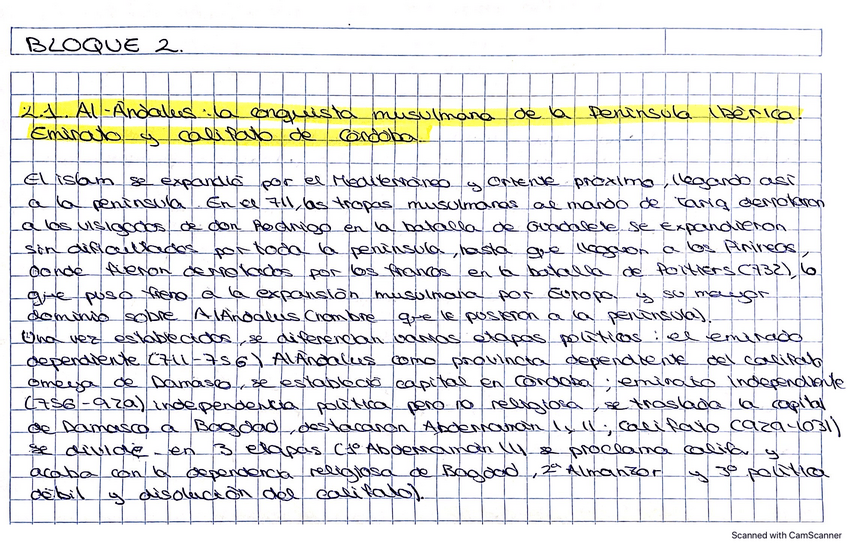 BLOQUE 2.
2.1. Al-Ándalus: la conquista musulmana de la Península Ibérica.
Emirato y califato de Córdoba.
El islam se expandió por el Mediterráneo y Oriente próximo, llegando así
a la península. En el 711, las tropas musulmanas al mando de Tariq derrotaron
a los visigodos de don Rodrigo en la batalla de Guadalete se expandieron
sin dificultades por toda la península, hasta que llegaron a los Pirineos,
donde fueron derrotados por los francos en la batalla de Poitiers (732), lo
que puso freno a la expansión musulmana por Europa y su mayor
dominio sobre AlÁndalus (nombre que le pusieron a la península).
Una vez establecidos, se diferencian varios etapas políticas: el emirado
dependiente (711-756) AlÁndalus como provincia dependiente del califato
omeya de Damasco, se estableció capital en Córdoba; emirato independiente
(756-929) independencia política pero no religiosa, se traslada la capital
de Damasco a Bagdad, destacaron Abderramán I, II; califato (929-1031)
se divide en 3 etapas (1º Abderramán III se proclama califa y
acaba con la dependencia religiosa de Bagdad, 2º Almanzor y 3º política
débil y disolución del califato).
Scanned with CamScanner